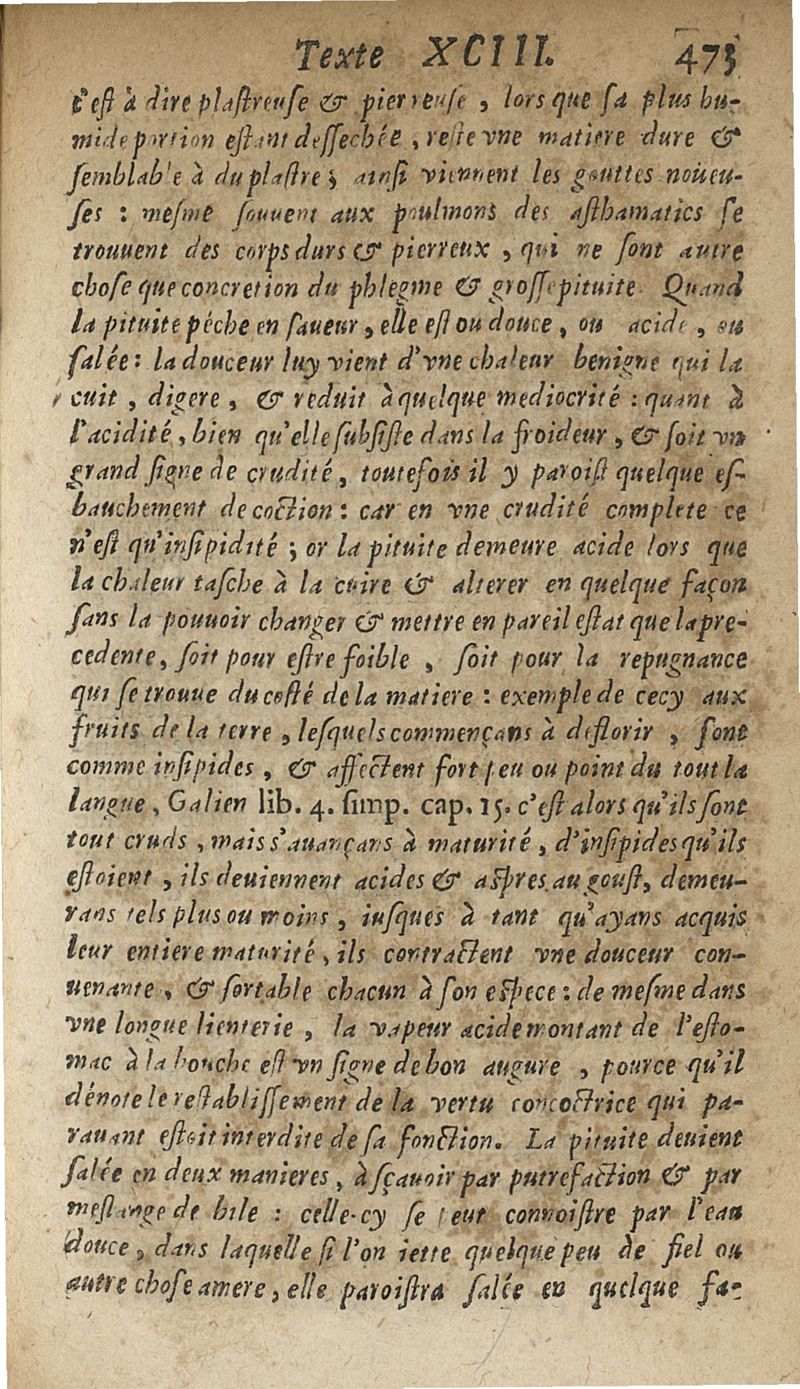 Texte XCIII. 473
c'eſt à dire plaſtreuſe & pierreuſe, lors que ſa plus hu-
mide portion eſtant deſſechée, reſte vne matiere dure &
ſemblable à du plaſtre; ainſi viennent les gouttes noüeu-
ſes : meſme ſouuent aux poulmons des aſthamatics ſe
trouuent des corps durs & pierreux, qui ne ſont autre
choſe que concretion du phlegme & groſſe pituite. Quand
la pituite péche en ſaueur, elle eſt ou douce, ou acide, ou
ſalée : la douceur luy vient d'vne chaleur benigne qui la
cuit, digere, & reduit à quelque mediocrité : quant à
l'acidité, bien qu'elle ſubſiſte dans la froideur, & ſoit vn
grand ſigne de crudité, toutefois il y paroiſt quelque eſ-
bauchement de coction : car en vne crudité complete ce
n'eſt qu'inſipidité; or la pituite demeure acide lors que
la chaleur taſche à la cuire & alterer en quelque façon
ſans la pouuoir changer & mettre en pareil eſtat que la pre-
cedente, ſoit pour eſtre foible, ſoit pour la repugnance
qui ſe trouue du coſté de la matiere : exemple de cecy aux
fruits de la terre, leſquels commençans à deflorir, ſont
comme inſipides, & affectent fort peu ou point du tout la
langue, Galien lib. 4. ſimp. cap. 15. c'eſt alors qu'ils ſont
tout cruds, mais s'auançans à maturité, d'inſipides qu'ils
eſtoient, ils deuiennent acides & aſpres au gouſt, demeu-
rans tels plus ou moins, iuſques à tant qu'ayans acquis
leur entiere maturité, ils contractent vne douceur con-
uenante, & ſortable chacun à ſon eſpece : de meſme dans
vne longue lienterie, la vapeur acide montant de l'eſto-
mac à la bouche eſt vn ſigne de bon augure, pource qu'il
dénote le reſtabliſſement de la vertu concoctrice qui pa-
rauant eſtoit interdite de ſa fonction. La pituite deuient
ſalée en deux manieres, à ſçauoir par putrefaction & par
meſlange de bile : celle-cy ſe peut connoiſtre par l'eau
douce, dans laquelle ſi l'on iette quelque peu de fiel ou
autre choſe amere, elle paroiſtra ſalée en quelque fa-